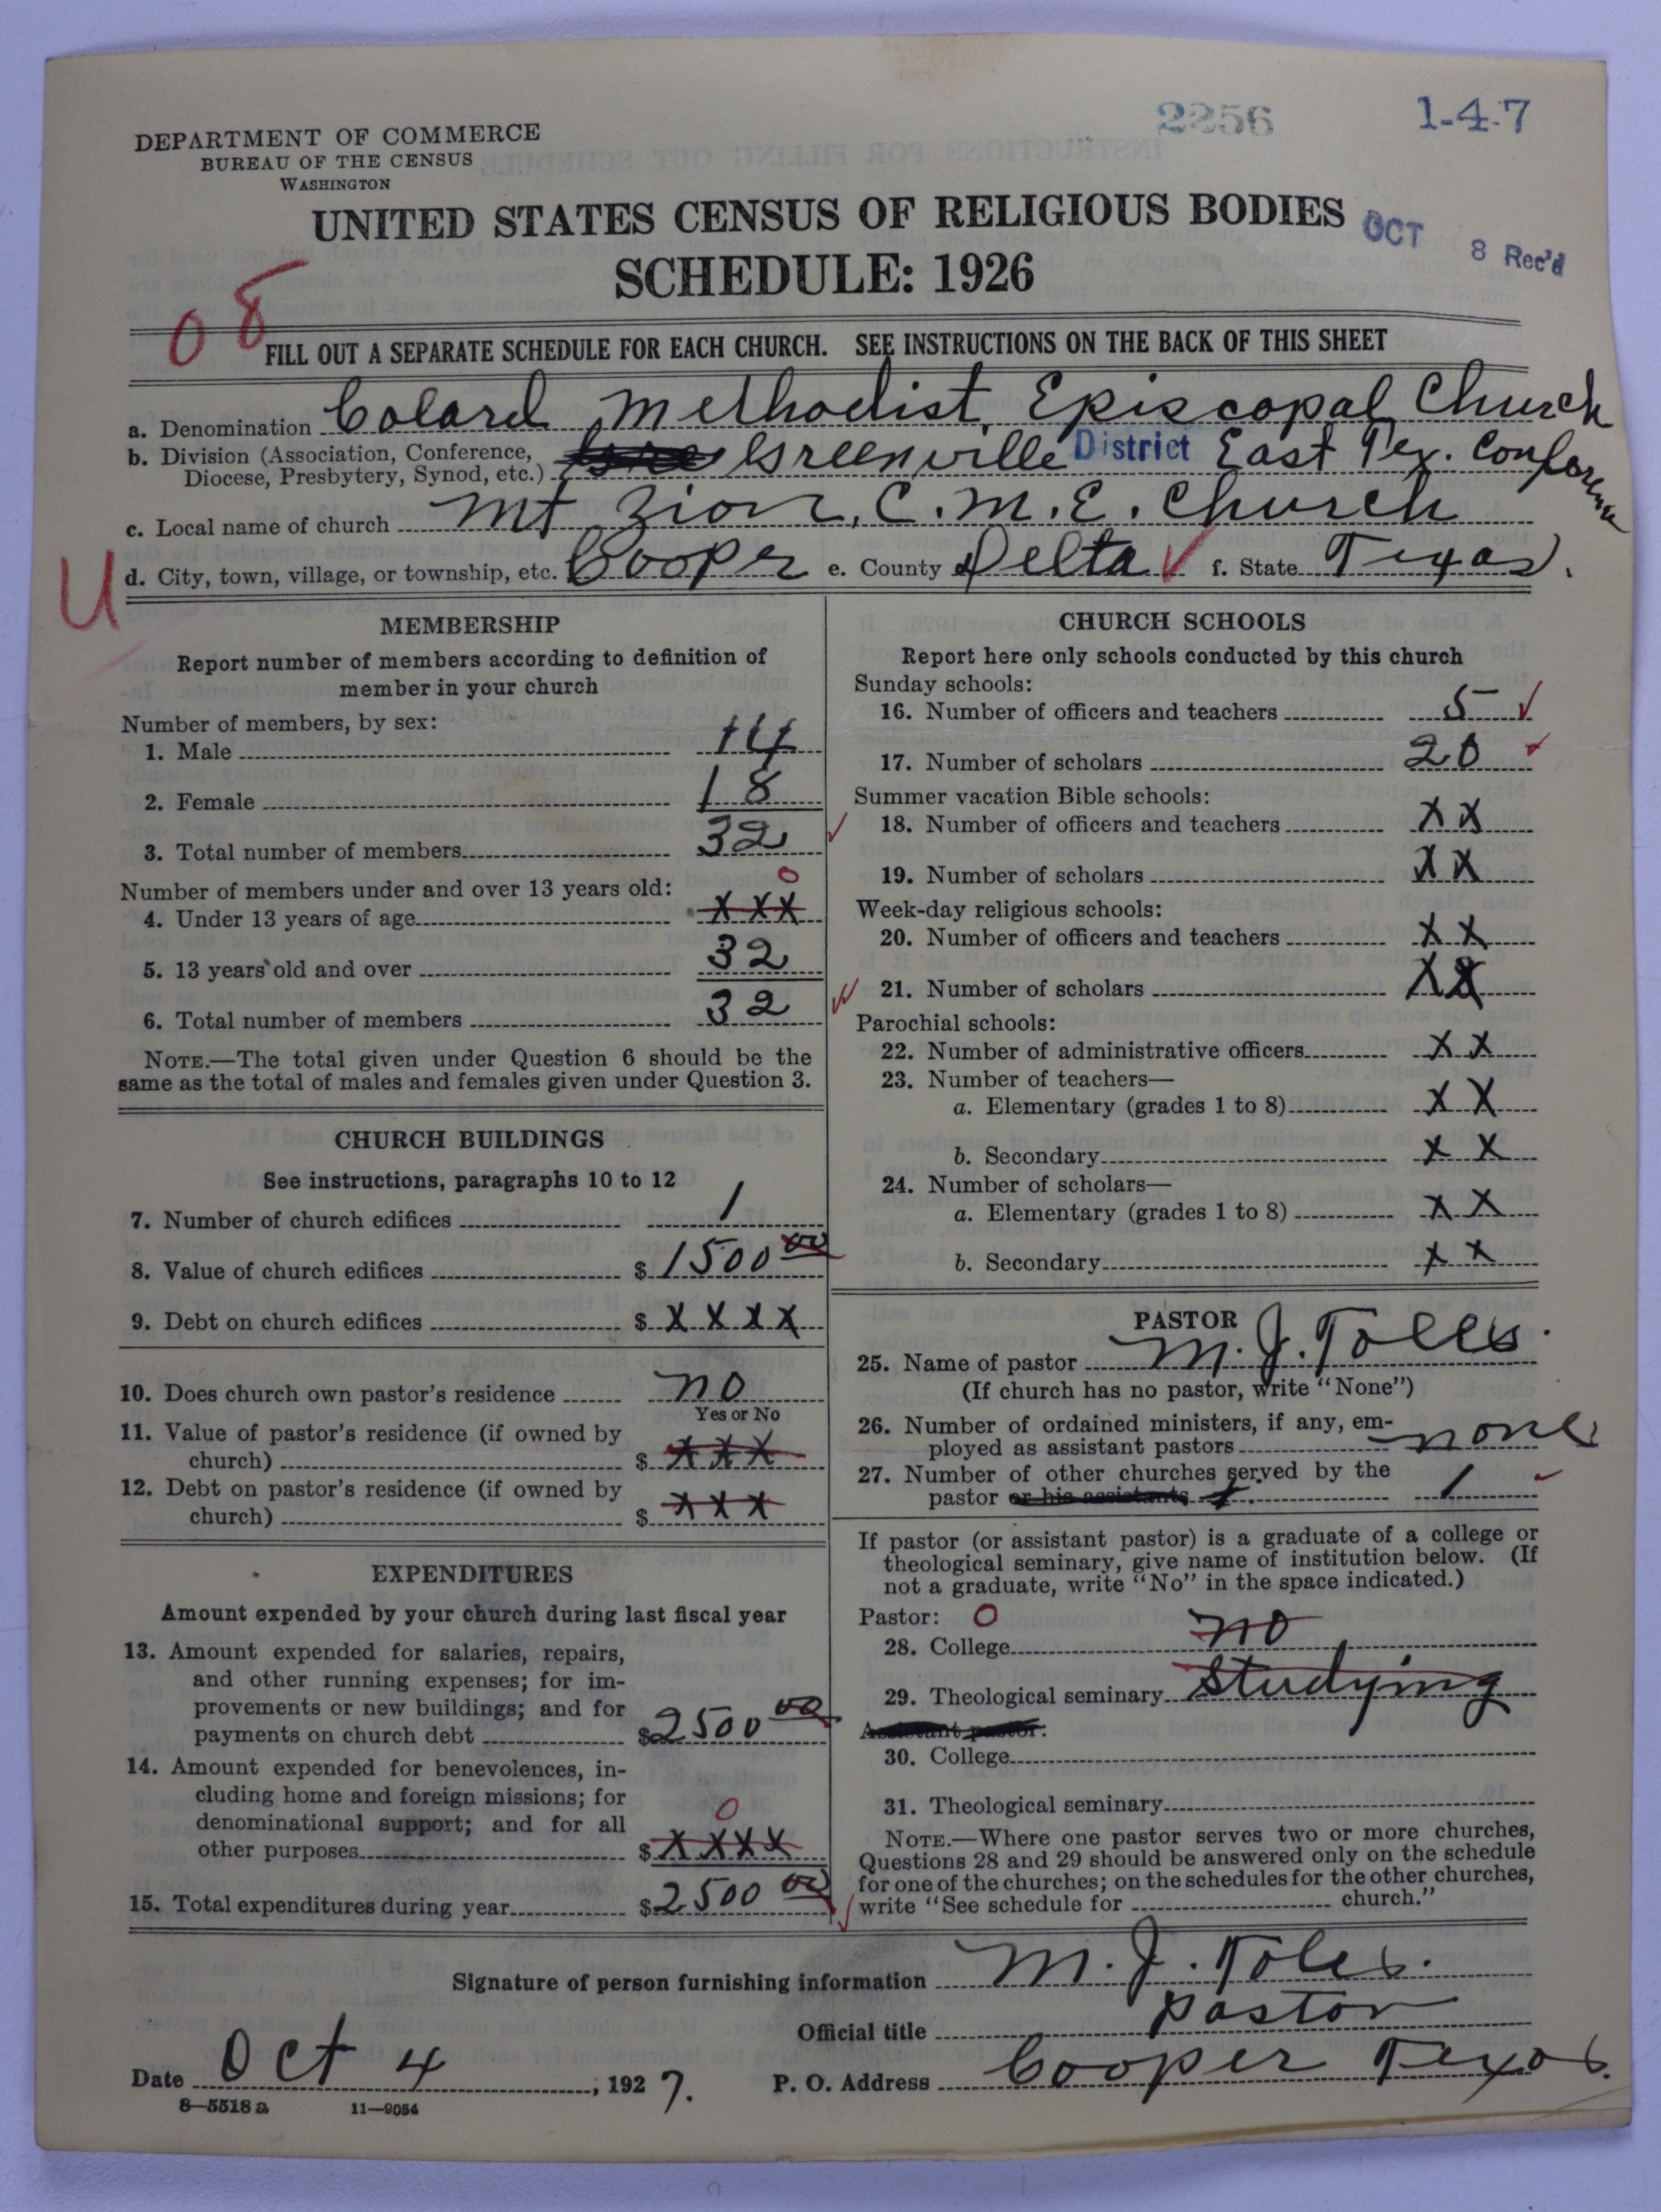 2256
1-4-7
DEPARTMENT OF COMMERCE
BUREAU OF THE CENSUS
WASHINGTON
UNITED STATES CENSUS OF RELIGIOUS BODIES
SCHEDULE: 1926
OCT 8 Rec'd
08
FILL OUT A SEPARATE SCHEDULE FOR EACH CHURCH. SEE INSTRUCTIONS ON THE BACK OF THIS SHEET
a. Denomination Colard Methodist Episcopal Church
b. Division (Association, Conference,
Diocese, Presbytery, Synod, etc.) Greenville District East Tex. Conference
c. Local name of church Mt Zion, C.M.E. Church
U
d. City, town, village, or township, etc. Cooper e. County Delta f. State Texas.
MEMBERSHIP
Report number of members according to definition of
member in your church
Number of members, by sex:
1. Male 14
2. Female 18
3. Total number of members 32
Number of members under and over 13 years old: 0
4. Under 13 years of age XXX
5. 13 years old and over 32
6. Total number of members 32
NOTE.—The total given under Question 6 should be the
same as the total of males and females given under Question 3.
CHURCH BUILDINGS
See instructions, paragraphs 10 to 12
7. Number of church edifices 1
8. Value of church edifices $ 1500 00
9. Debt on church edifices $ X X X X
10. Does church own pastor's residence no
Yes or No
11. Value of pastor's residence (if owned by
church) $ XXX
12. Debt on pastor's residence (if owned by
church) $ XXX
EXPENDITURES
Amount expended by your church during last fiscal year
13. Amount expended for salaries, repairs,
and other running expenses; for im-
provements or new buildings; and for
payments on church debt $ 2500 00
14. Amount expended for benevolences, in-
cluding home and foreign missions; for
denominational support; and for all 0
other purposes $ XXXX
15. Total expenditures during year $ 2500 00
CHURCH SCHOOLS
Report here only schools conducted by this church
Sunday schools:
16. Number of officers and teachers 5
17. Number of scholars 20
Summer vacation Bible schools:
18. Number of officers and teachers X X
19. Number of scholars X X
Week-day religious schools:
20. Number of officers and teachers X X
21. Number of scholars X X
Parochial schools:
22. Number of administrative officers X X
23. Number of teachers—
a. Elementary (grades 1 to 8) X X
b. Secondary X X
24. Number of scholars—
a. Elementary (grades 1 to 8) X X
b. Secondary X X
PASTOR
25. Name of pastor M. J. Toles.
(If church has no pastor, write "None")
26. Number of ordained ministers, if any, em-
ployed as assistant pastors none
27. Number of other churches served by the
pastor or his assistants 1. 1
If pastor (or assistant pastor) is a graduate of a college or
theological seminary, give name of institution below. (If
not a graduate, write "No" in the space indicated.)
Pastor: 0
28. College no
29. Theological seminary Studying
Assistant pastor:
30. College
31. Theological seminary
NOTE.—Where one pastor serves two or more churches,
Questions 28 and 29 should be answered only on the schedule
for one of the churches; on the schedules for the other churches,
write "See schedule for church."
Signature of person furnishing information M. J. Toles.
Official title Pastor
Date Oct 4, 1927. P. O. Address Cooper Texas.
8—5518 a 11—9054